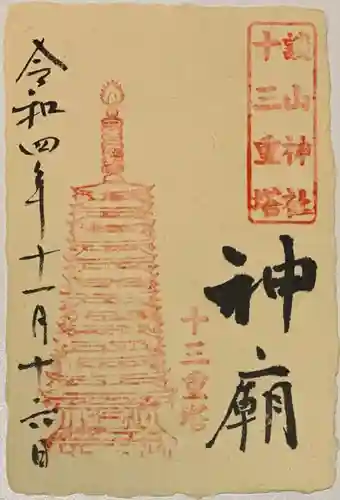 談山神社
十三重塔
神廟
十三重塔
令和四年十一月十六日